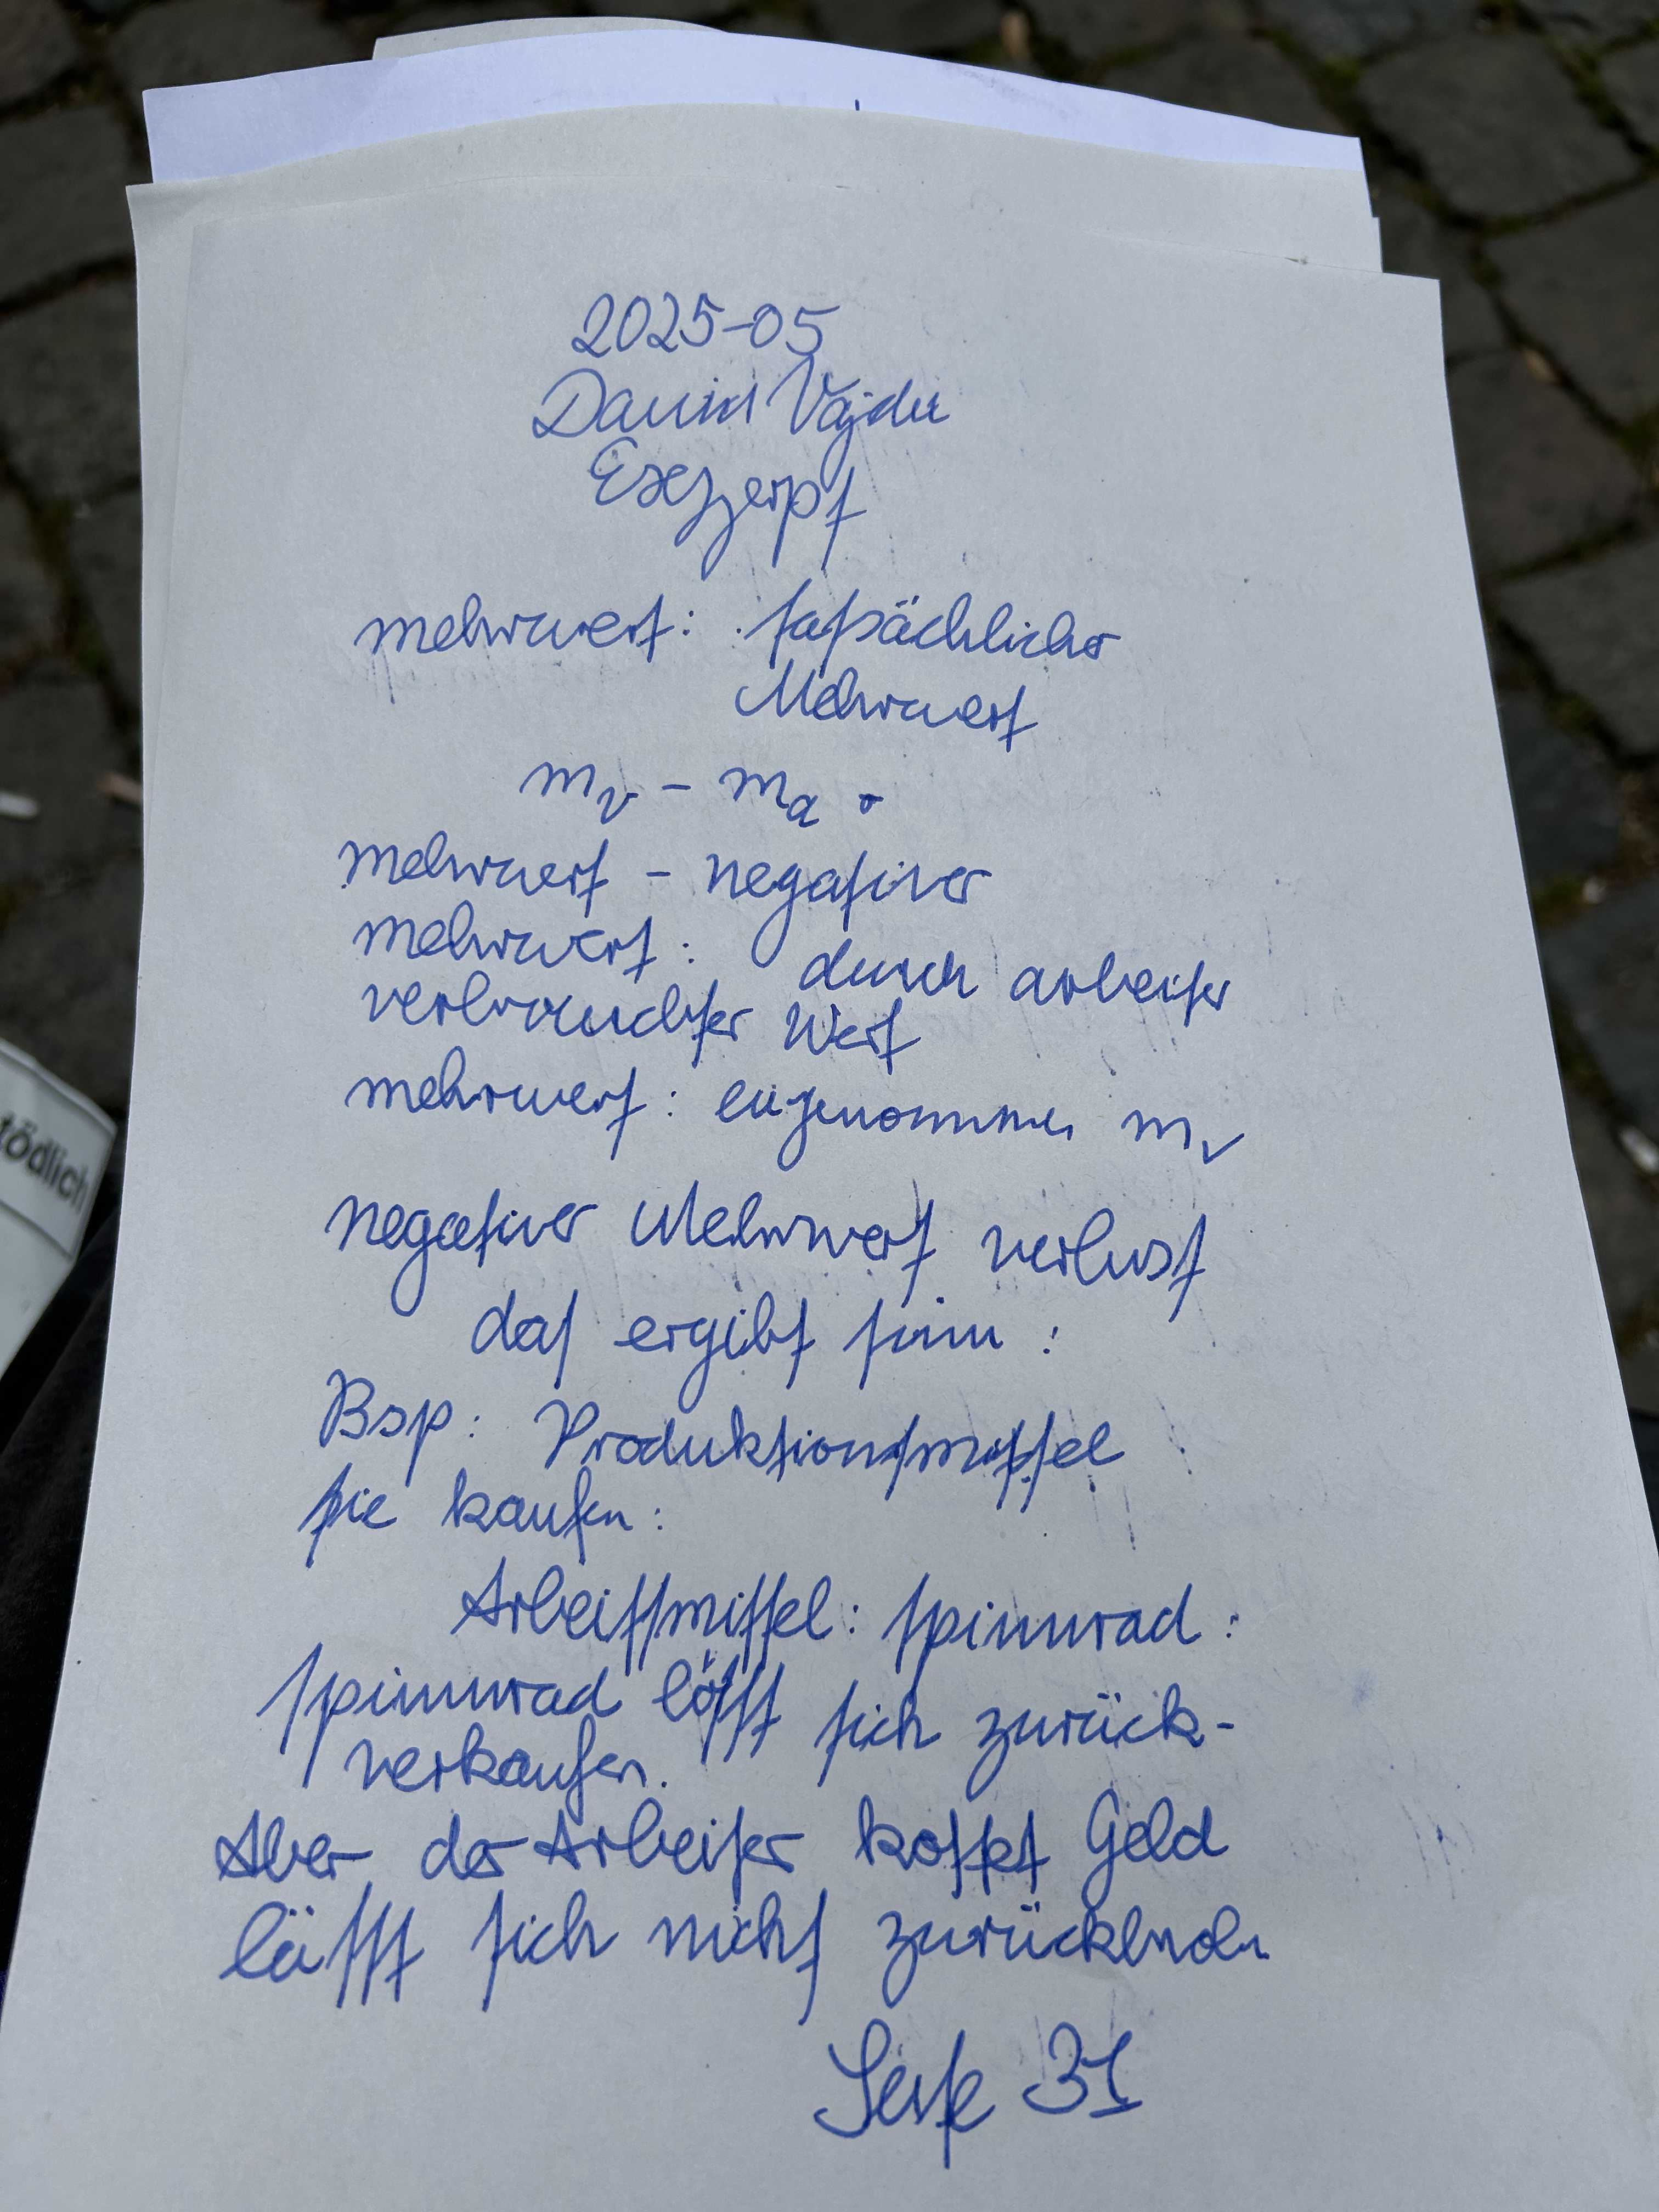 2025-05
Daniel Vajda
Exzerpt
mehrwert: tatsächlicher
Mehrwert
mv - ma
mehrwert - negativer
mehrwert: durch arbeiter
verbrauchter Wert
mehrwert: eingenommen mv
negativer Mehrwert verlust
daſ ergibt ſinn:
Bsp: Produktionſmittel
ſie kaufen:
Arbeitſmittel: ſpinnrad:
ſpinnrad läſſt ſich zurück-
verkaufen.
Aber der Arbeiter koſtet Geld
läſſt ſich nicht zurückholen
Seite 31
tödlich